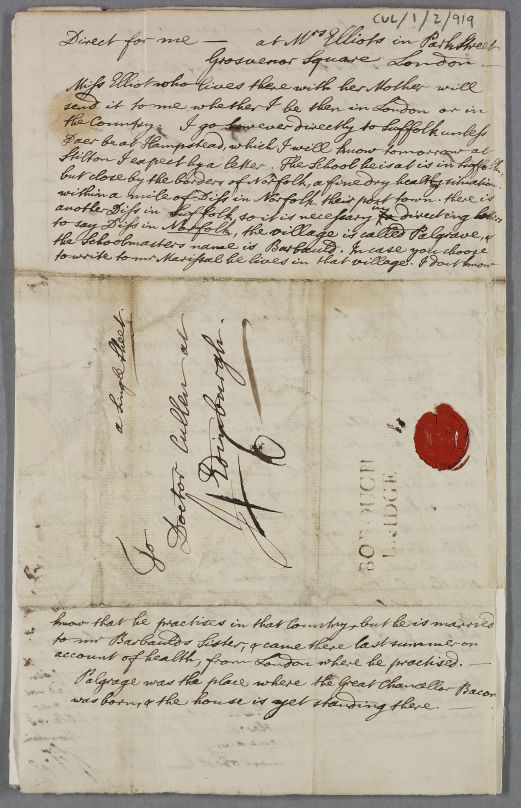 CUL/1/2/919
Direct for me — at Mrs Elliots in Park Street
Grosvenor Square London —
Miss Elliot who lives there with her Mother will
send it to me whether I be then in London or in
the Country. I go however directly to Suffolk unless
Daer be at Hampstead, which I will know tomorrow at
Stilton I expect by a letter. The School he is at is in Suffolk,
but close by the borders of Norfolk, a fine dry healthy situation
within a mile of Diss in Norfolk their post town. there is
another Diss in Suffolk, so it is necessary in directing letters
to say Diss in Norfolk, the village is called Palgrave, &
the Schoolmasters name is Barbauld. In case you choose
to write to mr he lives in that village. I dont know
a single sheet
To
Doctor Cullen at
Edinburgh.
6
BOROUGH
BRIDGE
know that he practises in that Country, but he is married
to mr Barbaulds Sister, & came there last summer on
account of health, from London where he practised. —
Palgrage was the place where the Great Chancellor Bacon
was born, & the house is yet standing there —